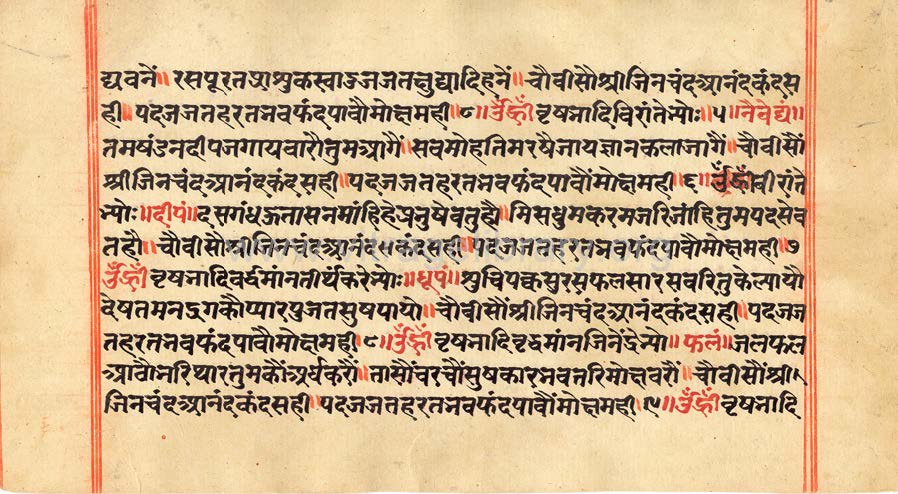 द्यवनें॥ रसपूरतप्राशुकस्वाऽजजतक्षुद्यादिहनें॥ चौवीसौश्रीजिनचंदआनंदकंदस
ही॥ पदजजतहरतभवफंदपावौमोक्षमही॥ ॐह्रीं वृषभादिविरांतेभ्योः॥५॥नैवेद्यं॥
तमषंडनदीपजगायवारौतुमआगैं॥ सवमोहतिमरषैजायज्ञानकलाजागैं॥ चौवीसौं
श्रीजिनचंदआनंदकंदसही॥ पदजजतहरतभवफंदपावौंमोक्षमही॥६॥ॐह्रीं वीरांते
भ्योः॥दीपं॥ दसगंधऊतासनमांहिहेप्रभुषेवतुहौ॥ मिसधुमकरमजरिजांहितुमपदसेव
तहौ॥ चौवीसौश्रीजिनचंदआनंदकंदसही॥ पदजजतहरतभवफंदपावौमोक्षमही॥७
ॐह्रीं वृषभादिवर्द्धमांनतीर्थंकरेभ्योः॥धूपं॥ शुचिपक्वसुरसफलसारसवरितुकेल्यायौ
देषतमनदृगकौप्यारपुजतसुषपायो॥ चौवीसौंश्रीजिनचंदआनंदकंदसही॥ पदजज
तहरतभवफंदपावौमोक्षमही॥८॥ॐह्रीं वृषभादिवृद्धमांनजिनेंद्रेभ्यो॥ फलं॥ जलफल
आवौंभरिथारतुमकौंअर्धकरौं॥ तासौंचरचौंसुषकारभवतरिमोक्षवरौं॥ चौवीसौंश्री
जिनचंदआनंदकंदसही॥ पदजजतहरतभवफंदपावौंमोक्षमही॥९॥ॐह्रीं वृषभादि